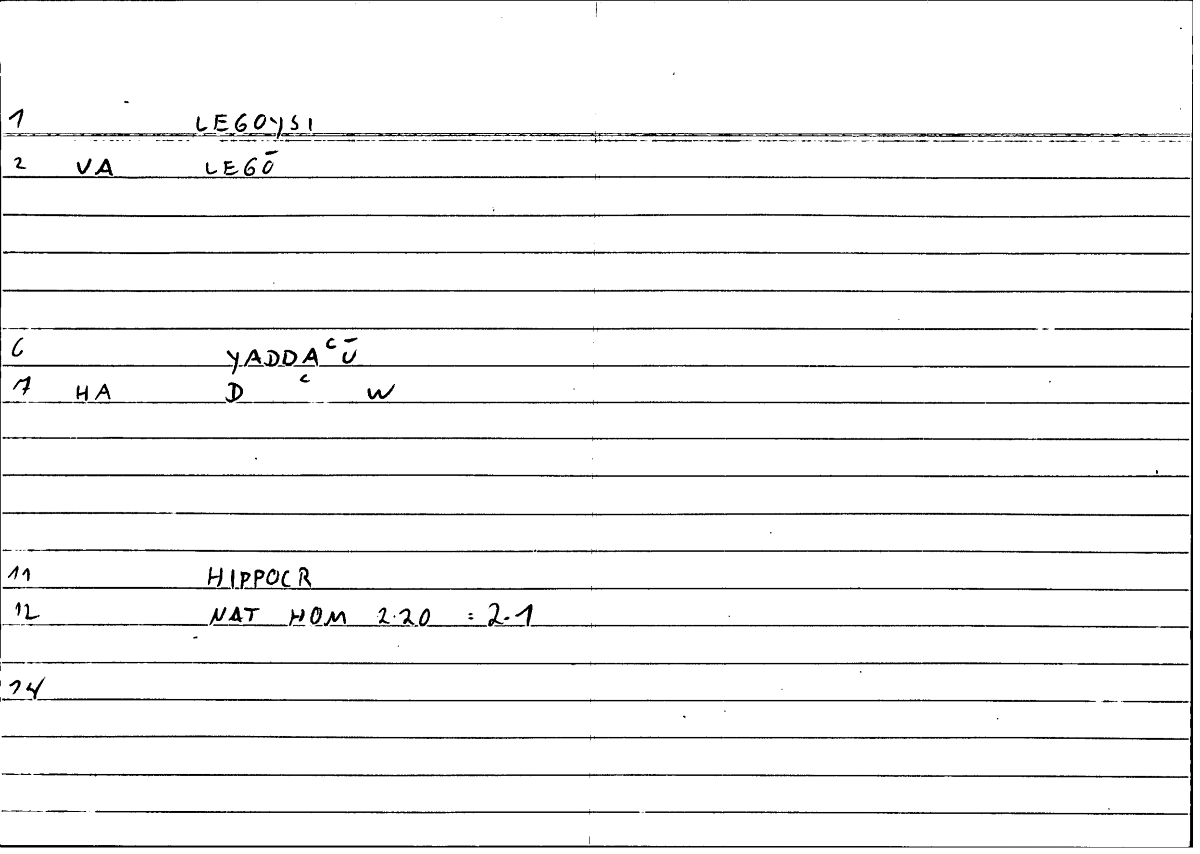 1 LEGOYSI
2 VA LEGŌ
6 YADDAᶜŪ
7 HA D ᶜ W
11 HIPPOCR
12 NAT HOM 2.20 = 2.1
14